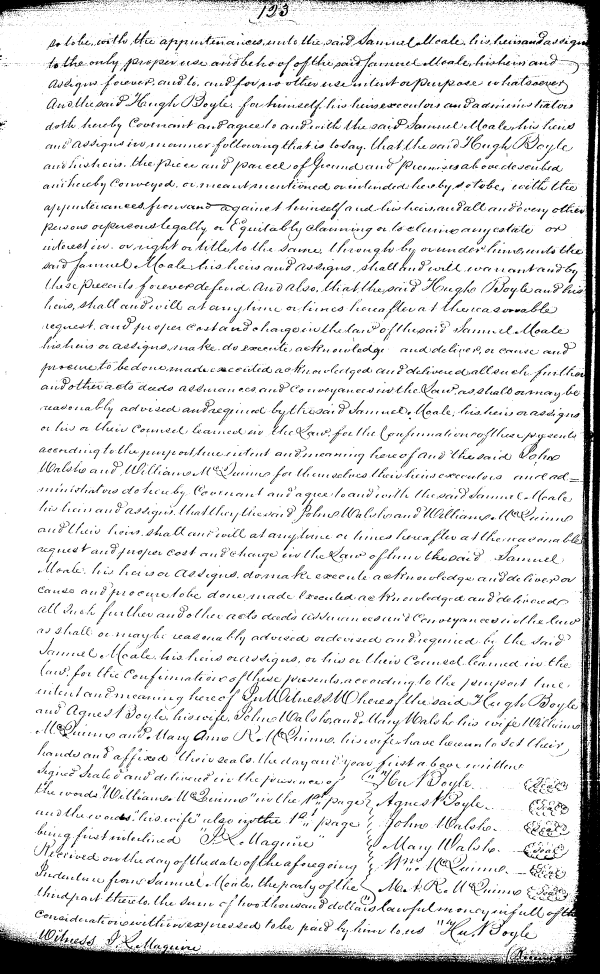 123
so to be, with the appurtenances, unto the said Samuel Moale, his heirs and assigns
to the only proper use and behoof of the said Samuel Moale, his heirs and
assigns forever, and to, and for no other use intent or purpose whatsoever,
And the said Hugh Boyle, for himself, his heirs executors and administrators
doth hereby Covenant and agree to and with the said Samuel Moale, his heirs
and assigns in manner following that is to say, that the said Hugh Boyle
and his heirs, the piece and parcel of Ground and Premises above described
and hereby Conveyed, or meant mentioned or intended hereby, so to be, with the
appurtenances, from and against himself and his heirs, and all and every other
person or persons legally or Equitably claiming or to claim any estate or
interest in, or right or title, to the same, through by or under him, unto the
said Samuel Moale, his heirs and assigns, shall and will warrant and by
these Presents, forever defend. And also, that the said Hugh Boyle and his
heirs, shall and will at any time or times hereafter at the reasonable
request, and proper cost and charge in the law of the said Samuel Moale
his heirs or assigns, make do execute acknowledge and deliver, or cause and
procure to be done, made executed acknowledged and delivered all such further
and other acts deeds assurances, and Conveyances in the Law, as, shall or may be
reasonably advised and required by the said Samuel, Moale, his heirs or assigns
or his or their Counsel learned in the Law, for the Confirmation of these presents
according to the purport, true intent and meaning hereof and the said John
Walsh and William McQuinn for themselves their heirs executors and ad=
ministrators do hereby Covenant and agree to and with the said Samuel Moale
his heirs and assigns, that they the said John Walsh and William McQuinn
and their heirs, shall and will at any time or times hereafter at the reasonable
request and proper cost and charge in the Law of him the said Samuel
Moale, his heirs or Assigns, do make execute acknowledge and deliver or
cause and procure to be done, made Executed acknowledged and delivered
all Such further and other acts deeds assurances and Conveyances in the law
as shall or may be reasonably advised or devised and required by the said
Samuel Moale, his heirs or assigns, or his or their Counsel learned in the
law, for the Confirmation of these presents, according to the purport true
intent and meaning hereof In Witness Whereof the said Hugh Boyle
and Agnes N Boyle, his wife, John Walsh, and Mary Walsh his wife William
McQuinn and Mary Ann R. McQuinn, his wife have hereunto set their
hands and affixed their seals, the day and year first above written
Signed Sealed and delivered in the presence of Hu N Boyle Seal
the words "William McQuinn" in the 1st page Agnes N Boyle Seal
and the words "his wife" also in the 1st page John Walsh Seal
being first interlined "J L Maguire" Mary Walsh Seal
Received on the day of the date of the aforegoing Wm McQuinn Seal
Indenture from Samuel Moale, the party of the M A R McQuinn Seal
third part thereto the sum of two thousand dollars lawful money in full of the
consideration within expressed to be paid by him to us "Hu N Boyle
Witness J L Maguire